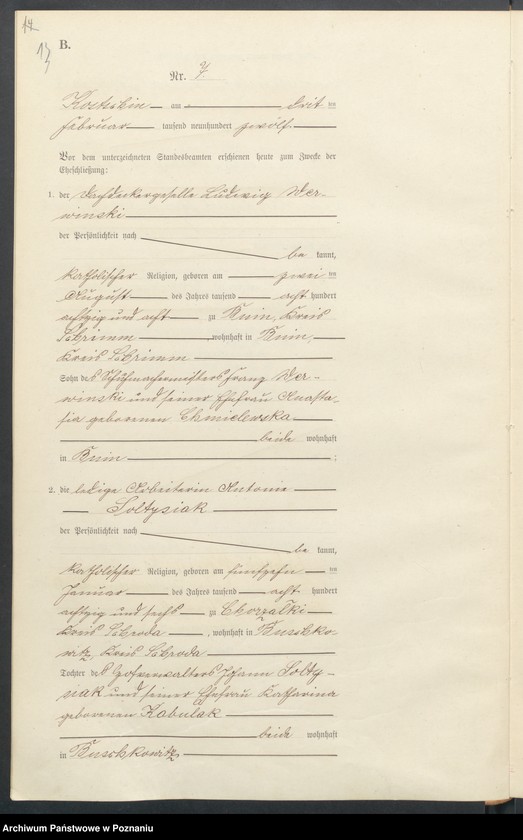 14
13
B.
Nr. 7.
Kostschin am drit ten
Februar tausend neunhundert zwölf
Vor dem unterzeichneten Standesbeamten erschienen heute zum Zwecke der
Eheschließung:
1. der Dachdeckergeselle Ludwig Wer-
winski
der Persönlichkeit nach
be kannt,
katholischer Religion, geboren am zwei ten
August des Jahres tausend acht hundert
achtzig und acht zu Bnin, Kreis
Schrimm, wohnhaft in Bnin,
Kreis Schrimm
Sohn des Schuhmachermeisters Franz Wer-
winski und seiner Ehefrau Anasta-
sia geborenen Chmielewska
beide wohnhaft
in Bnin ;
2. die ledige Arbeiterin Antonie
Soltysiak
der Persönlichkeit nach
be kannt,
katholischer Religion, geboren am fünfzehn ten
Januar des Jahres tausend acht hundert
achtzig und sechs zu Chorzalki
Kreis Schroda, wohnhaft in Buschko-
witz, Kreis Schroda
Tochter des Johann Solty-
siak und seiner Ehefrau Katharina
geborenen Kabulak
beide wohnhaft
in Buschkowitz
Archiwum Państwowe w Poznaniu